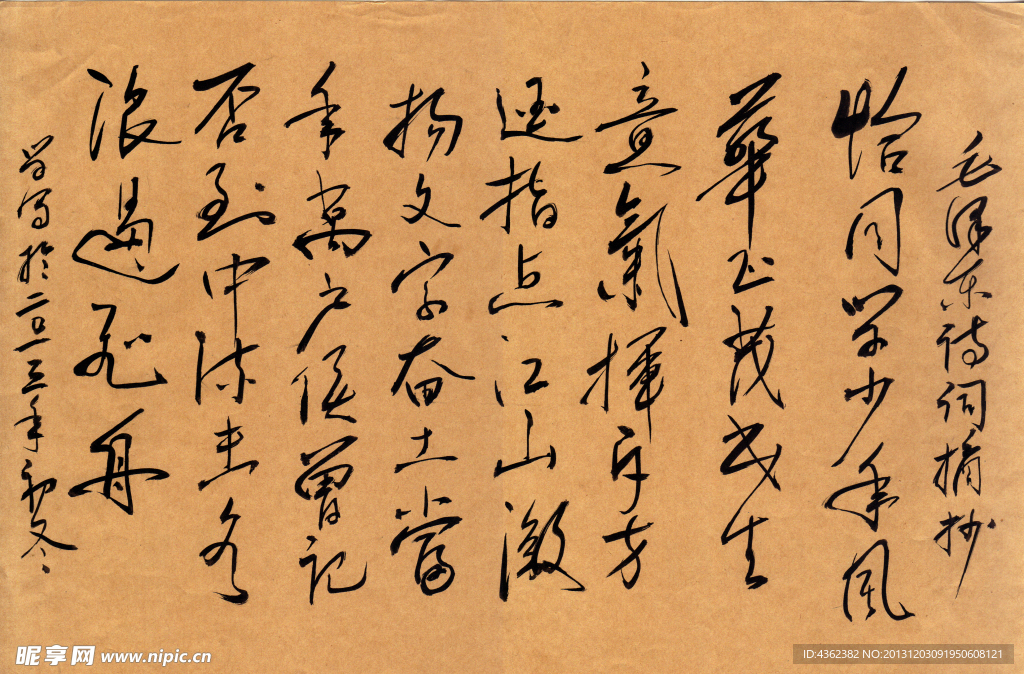 毛泽东诗词摘抄
恰同学少年风
華正茂书生
意氣揮斥方
遒指点江山激
扬文字奋土當
年萬户侯曾记
否到中流击水
浪遏飞舟
学写於二〇一三年初冬
昵享网 www.nipic.cn
ID:4362382 NO:20131203091950608121